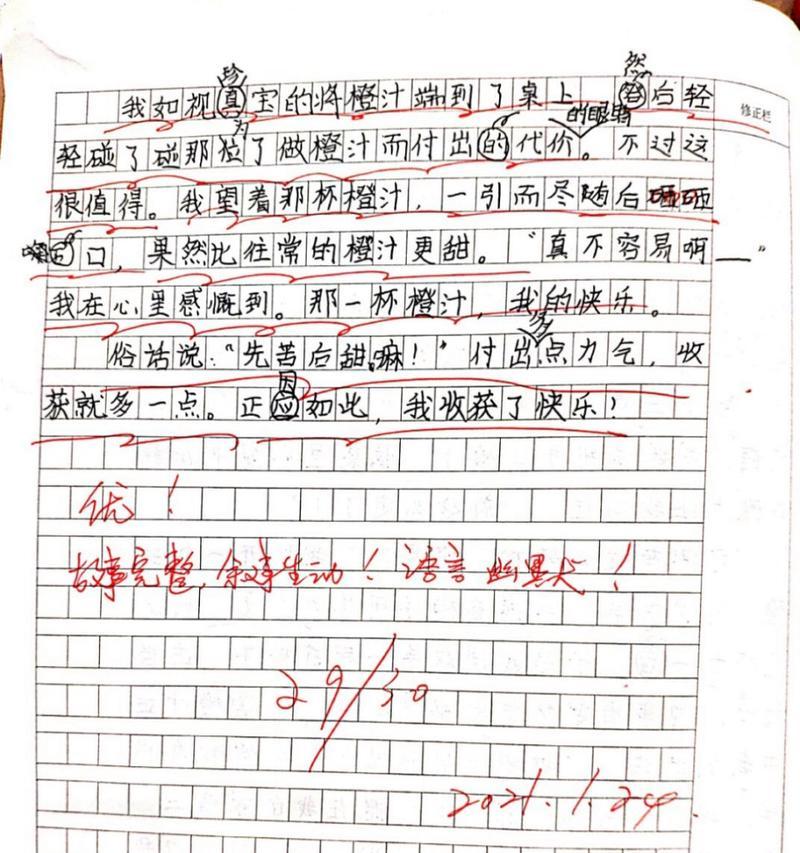 珍 然
我如视真宝的将橙汁端到了桌上。答后轻
修正栏
为 的眼睛
轻碰了碰那位了做橙汁而付出的代价。不过这
很值得。我望着那杯橙汁，一引而尽随后硒硒
嘴 口，果然比往常的橙汁更甜。“真不容易啊——”
我在心里感慨到。那一杯橙汁，我的快乐。
多
俗话说：“先苦后甜嘛！”付出点力气，收
因
获就多一点。正应如此，我收获了快乐！
优！
故事完整，叙事生动！语言幽默！
29/30
2021.1.24